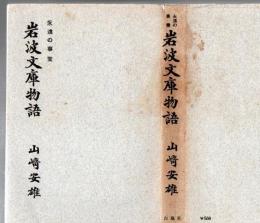 永遠の事業
岩波文庫物語
山崎安雄
永遠の
事業
岩波文庫物語
山崎安雄
白鳳社
¥500